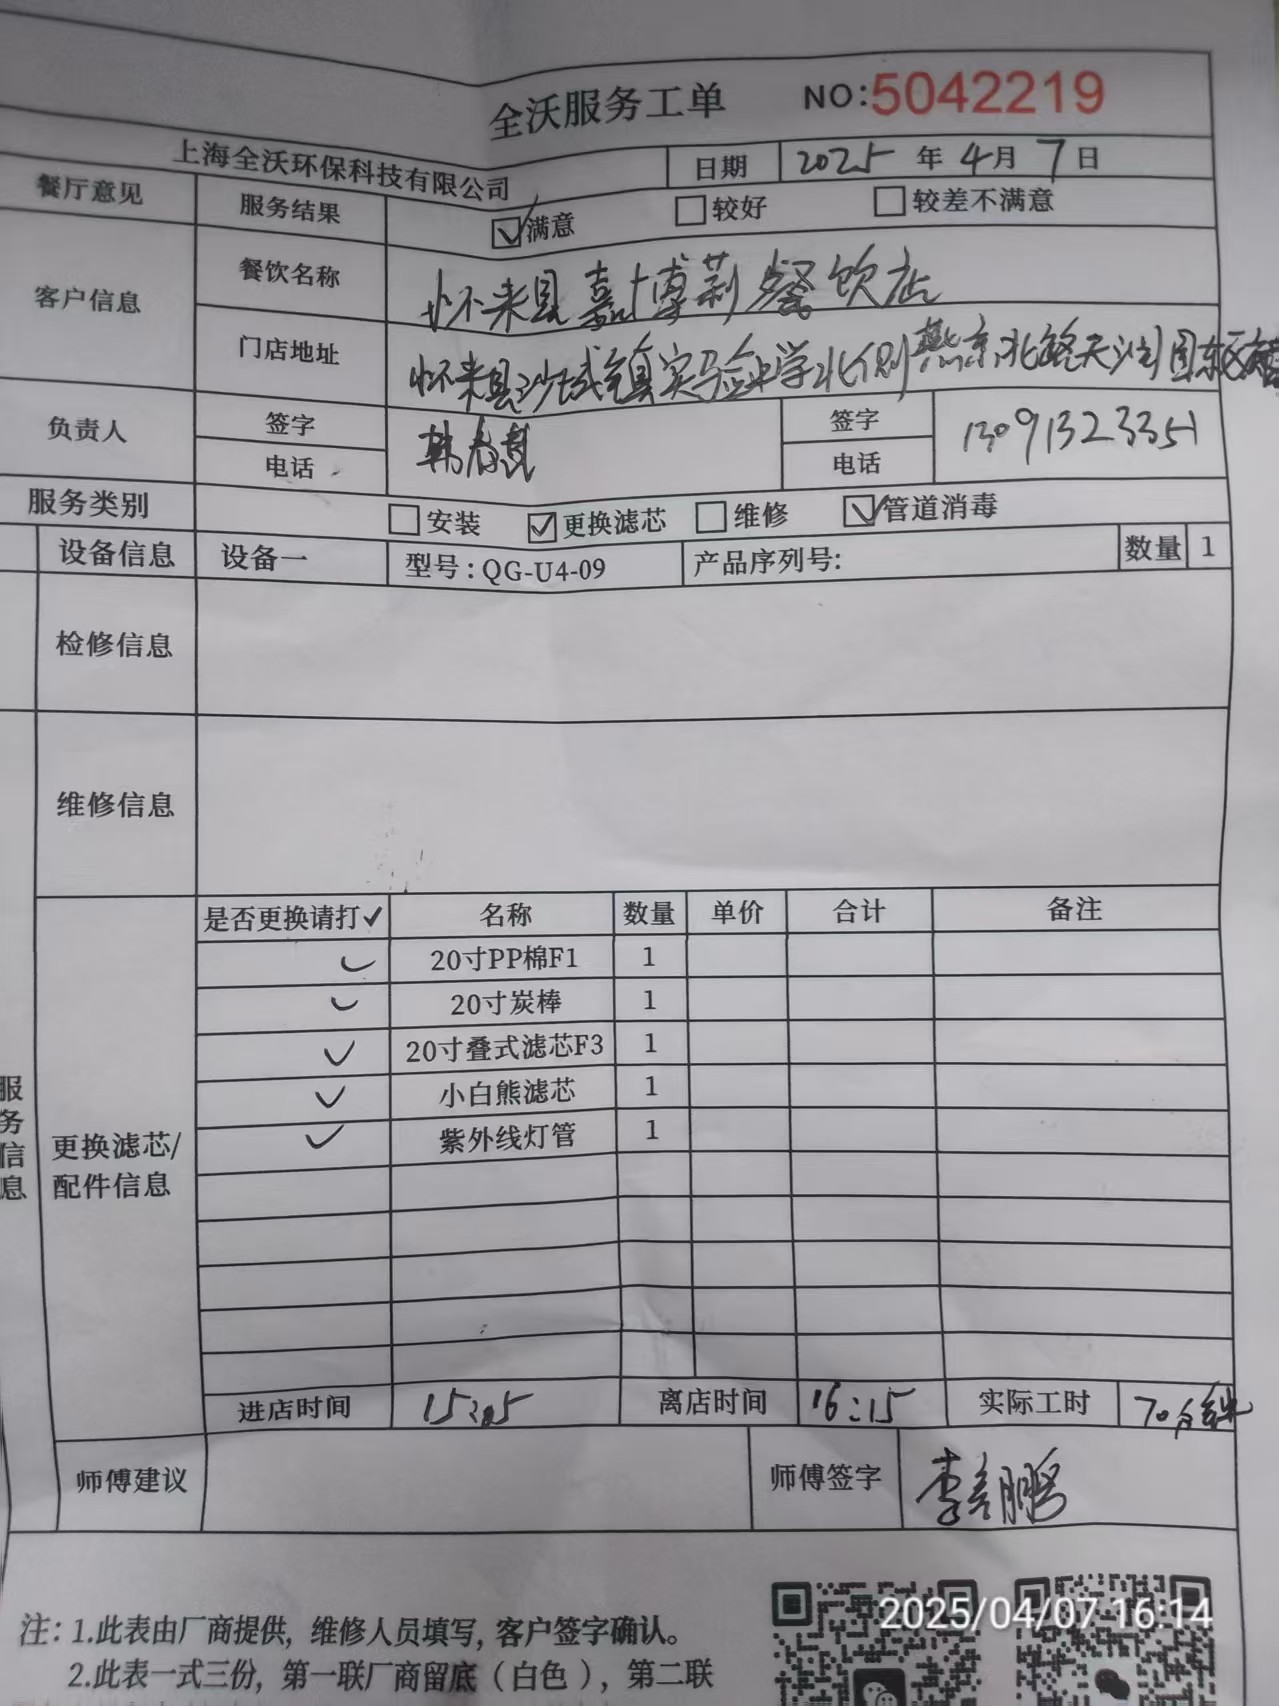 全沃服务工单 NO:5042219
上海全沃环保科技有限公司 日期 2025年4月7日
餐厅意见 服务结果 ☑满意 □较好 □较差不满意
客户信息 餐饮名称 怀来县嘉博莉餐饮店
门店地址 怀来县沙城镇实验中学北侧燕京北路天
负责人 签字 韩 签字
电话 电话 13091323351
服务类别 □安装 ☑更换滤芯 □维修 ☑管道消毒
设备信息 设备一 型号:QG-U4-09 产品序列号: 数量 1
检修信息
维修信息
服务信息
更换滤芯/配件信息
是否更换请打✓ 名称 数量 单价 合计 备注
✓ 20寸PP棉F1 1
✓ 20寸炭棒 1
✓ 20寸叠式滤芯F3 1
✓ 小白熊滤芯 1
✓ 紫外线灯管 1
进店时间 15:05 离店时间 16:15 实际工时 70分钟
师傅建议 师傅签字 李 鹏
注:1.此表由厂商提供,维修人员填写,客户签字确认。
2.此表一式三份,第一联厂商留底(白色),第二联
2025/04/07 16:14